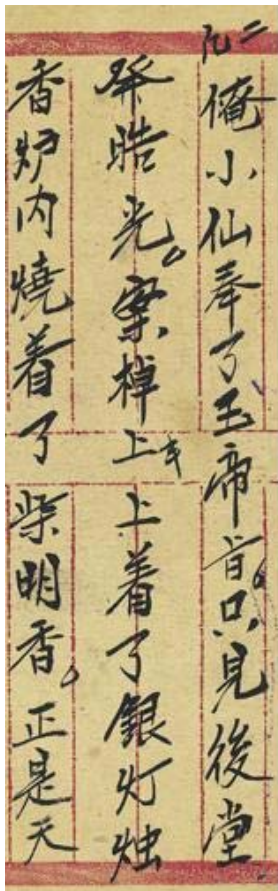 二凡俺小仙奉了玉帝旨。只見後堂
發晧光。案棹上上着了銀灯烛
香炉内燒着了柴明香。正是天